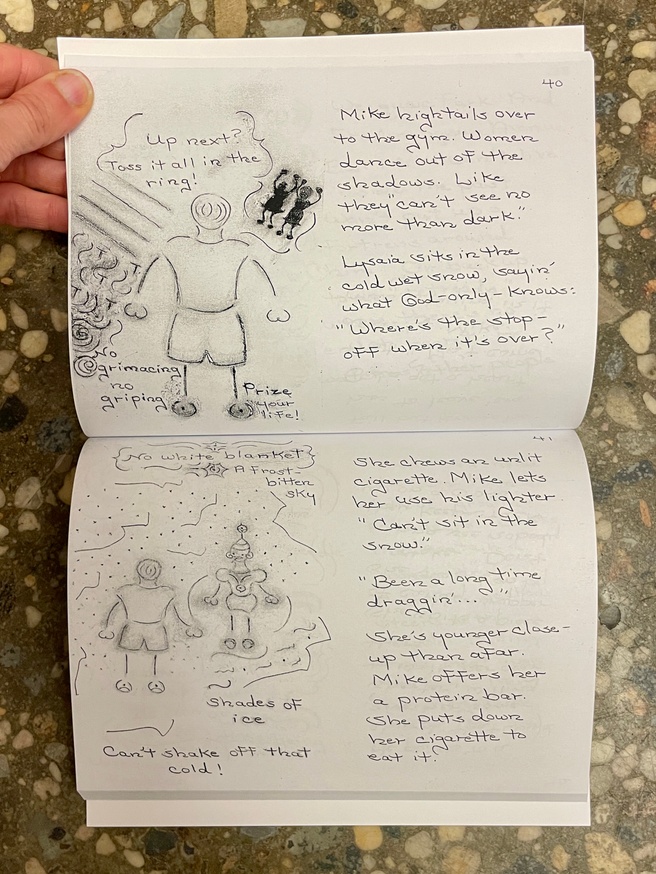 40
Up next?
Toss it all in the
ring!
No
grimacing
no
griping
Prize
your
life!
Mike hightails over
to the gym. Women
dance out of the
shadows. Like
they "can't see no
more than dark."
Lysaia sits in the
cold wet snow, sayin'
what God-only-knows:
"Where's the stop-
off when it's over?"
41
No white blanket
A Frost-
bitten
sky
Shades of
ice
Can't shake off that
cold!
She chews an unlit
cigarette. Mike lets
her use his lighter.
"Can't sit in the
snow."
"Been a long time
draggin'..."
She's younger close-
up than afar.
Mike offers her
a protein bar.
She puts down
her cigarette to
eat it.